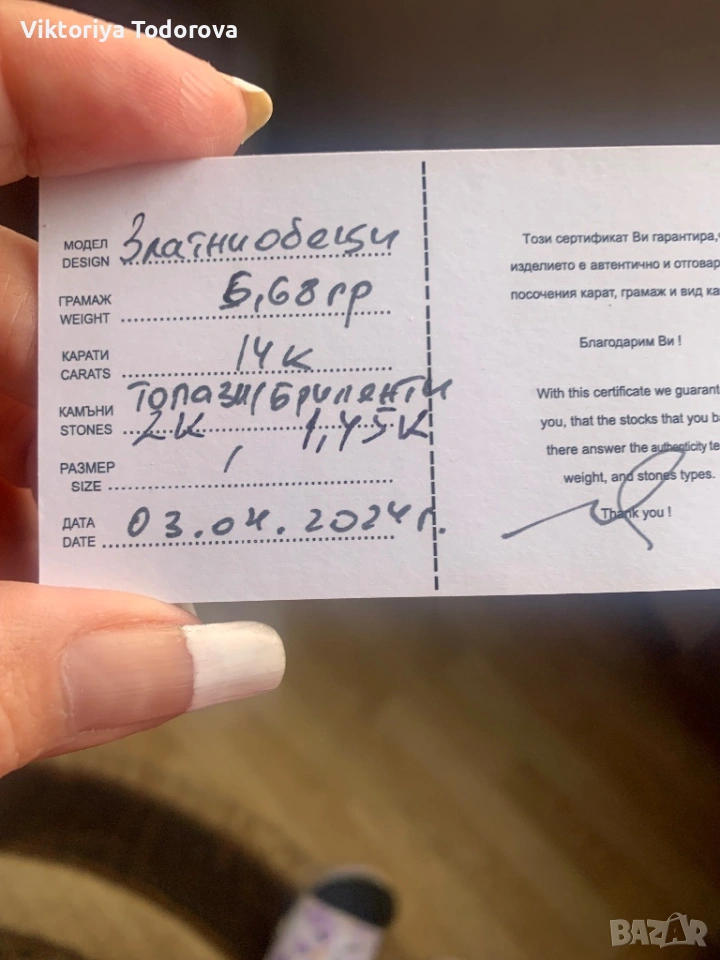 Viktoriya Todorova
МОДЕЛ
DESIGN
Златни обеци
ГРАМАЖ
WEIGHT
6,68гр
КАРАТИ
CARATS
14к
КАМЪНИ
STONES
топази/брилянти
2к 1,45к
РАЗМЕР
SIZE
/
ДАТА
DATE
03.04.2024г.
Този сертификат Ви гарантира,
изделието е автентично и отговар
посочения карат, грамаж и вид ка
Благодарим Ви !
With this certificate we guarant
you, that the stocks that you b
there answer the authenticity te
weight, and stones types.
Thank you !
BAZAR